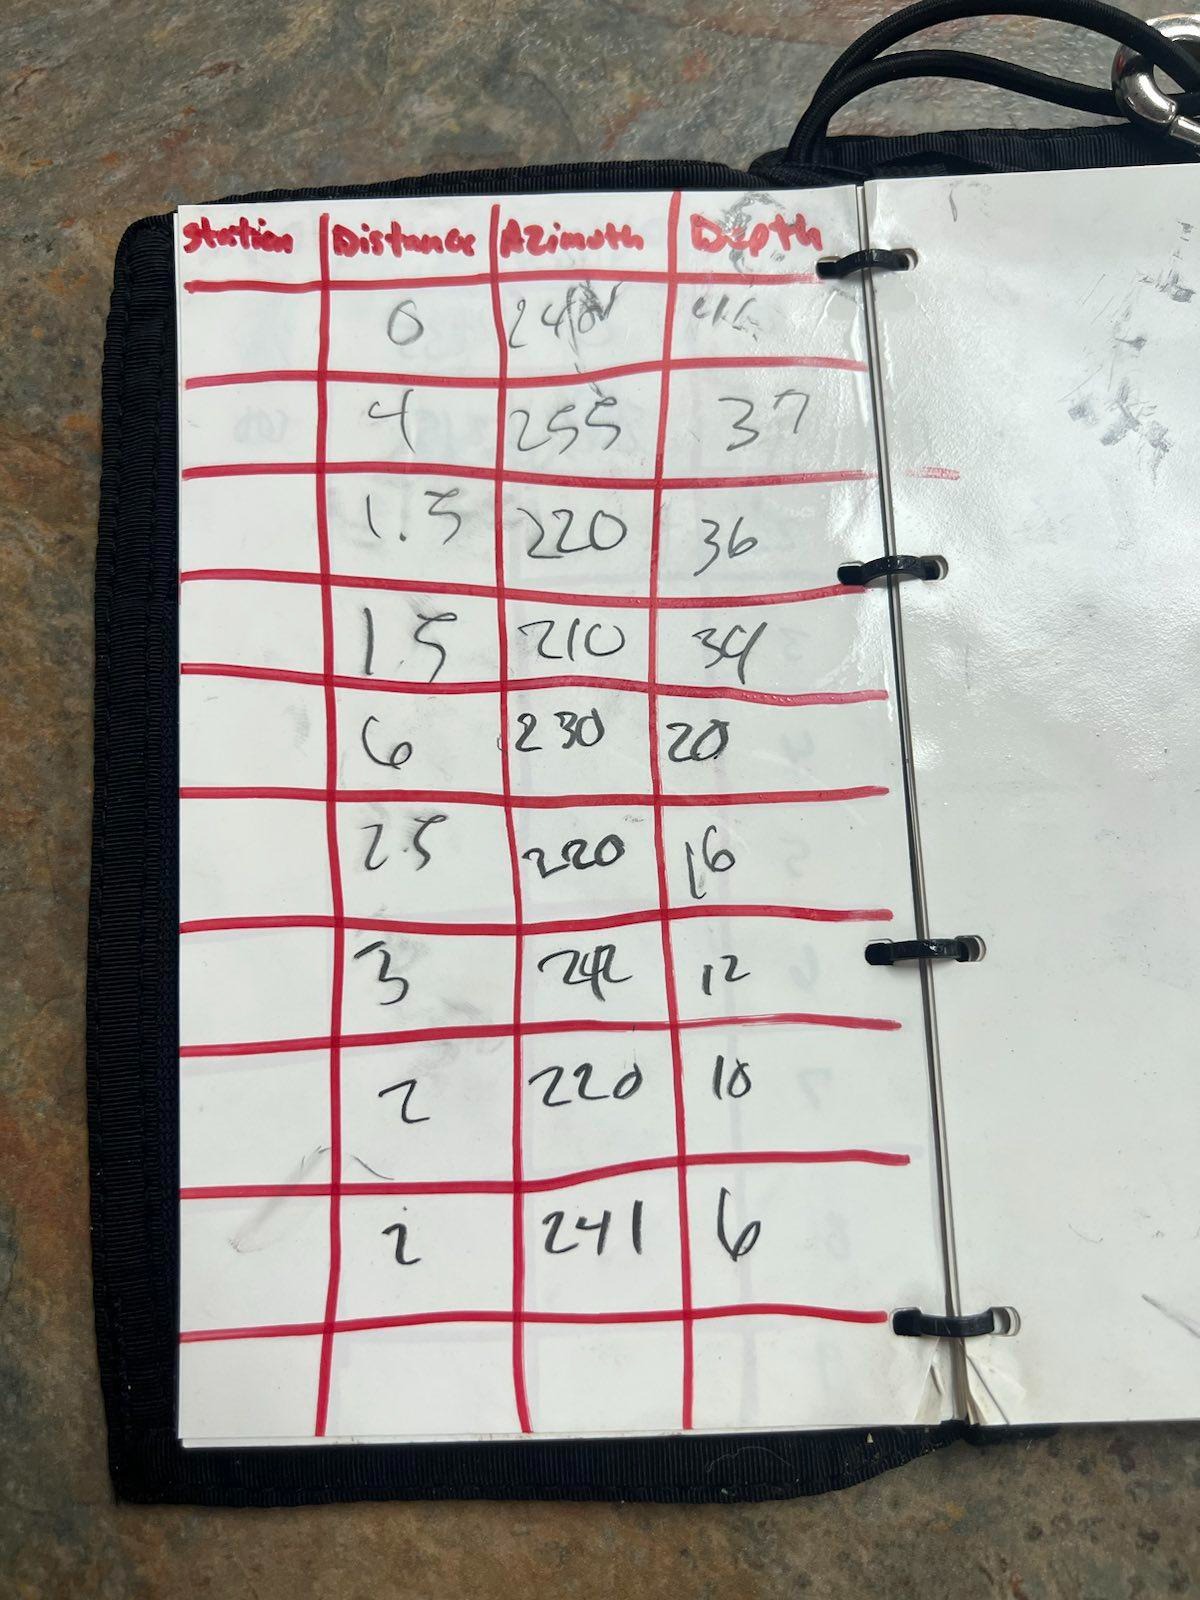 Station Distance Azimuth Depth
0 240
4 255 37
1.5 220 36
1.5 210 34
6 230 20
2.5 220 16
3 242 12
2 220 10
2 241 6